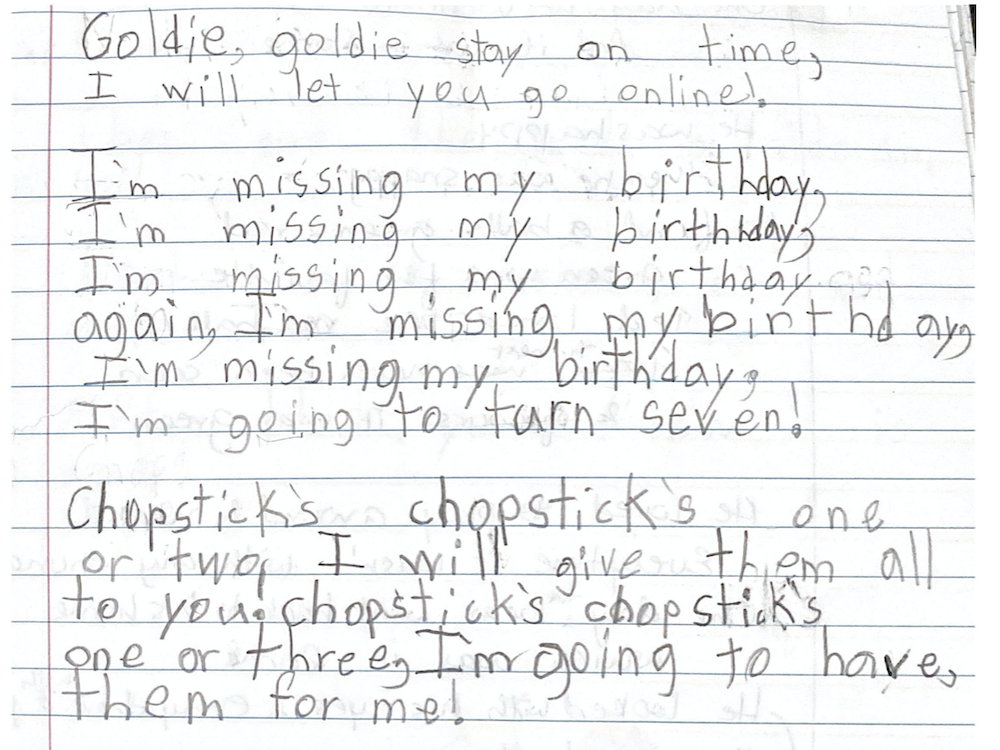 Goldie, goldie stay on time,
I will let you go online!
I'm missing my birthday,
I'm missing my birthday,
I'm missing my birthday
again, I'm missing my birthday,
I'm missing my birthday,
I'm going to turn seven!
Chopstick's chopstick's one
or two, I will give them all
to you! chopstick's chopstick's
one or three, I'm going to have,
them for me!